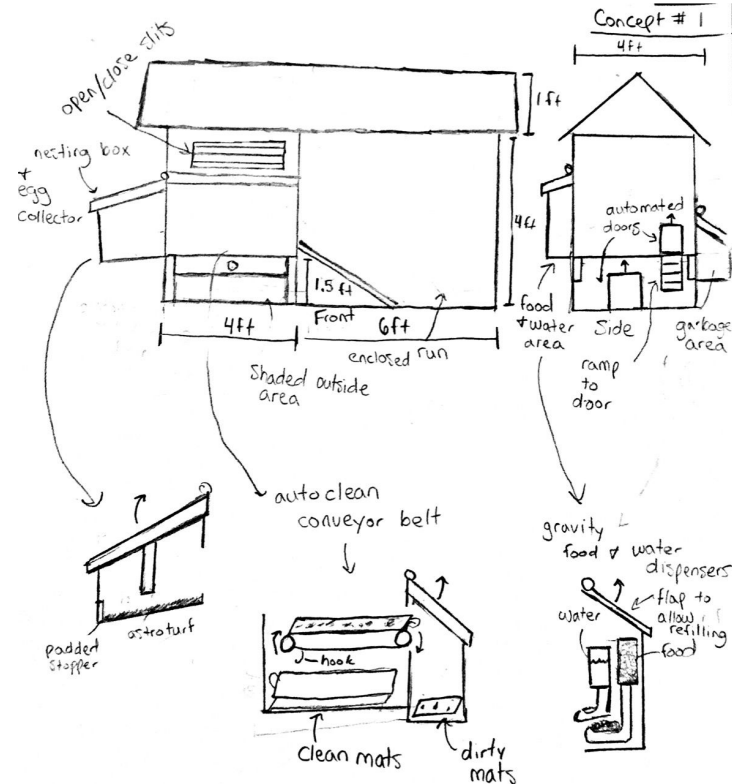 Concept # 1
4ft
open/close slits
1ft
nesting box
+ egg
collector
automated
doors
4ft
1.5 ft
Front
4ft
6ft
enclosed run
Shaded outside
area
food
+ water
area
Side
garbage
area
ramp
to
door
autoclean
conveyor belt
gravity
food + water
dispensers
flap to
allow
refilling
water
food
padded
stopper
astroturf
hook
clean mats
dirty
mats